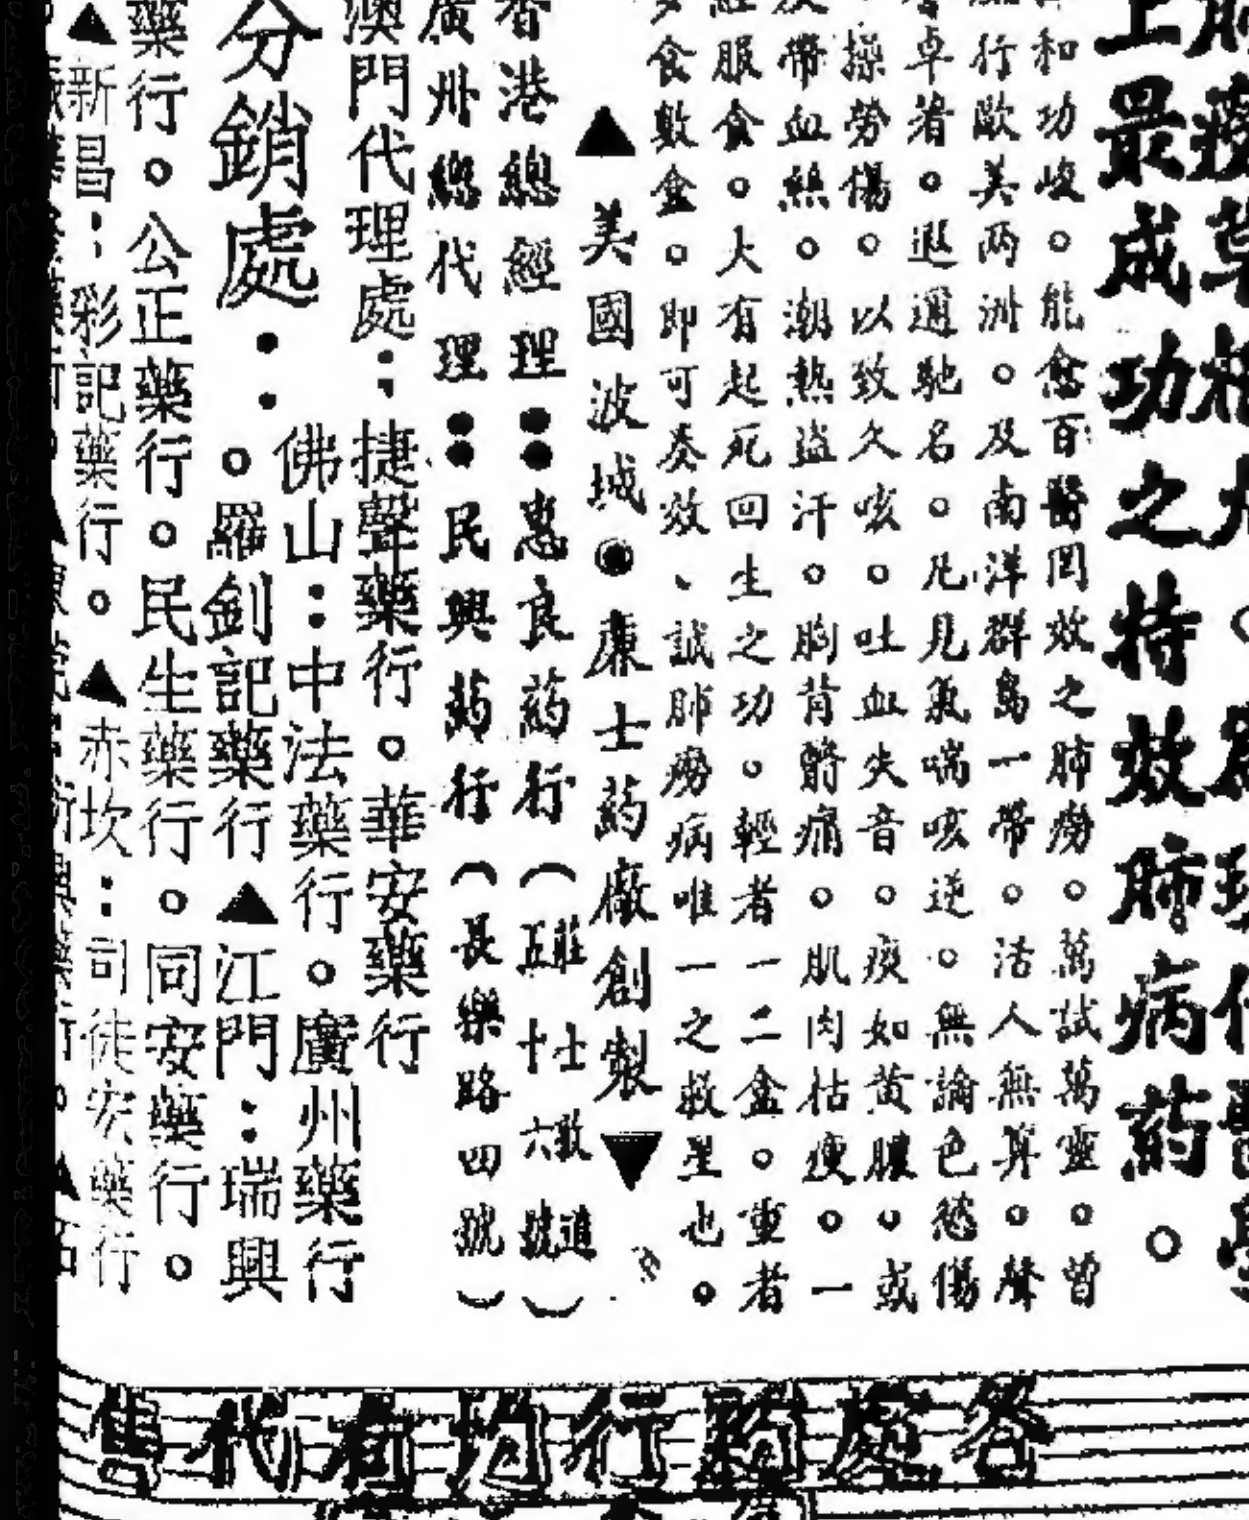 上最成功之特效肺病药。
和功峻。能愈百醫罔效之肺癆。萬試萬靈。曾
行歐美兩洲。及南洋群島一帶。活人無算。聲
卓著。遐邇馳名。凡見氣喘咳逆。無論色慾傷
操勞傷。以致久咳。吐血失音。痰如黄膿。或
帶血絲。潮熱盜汗。胸背髀痛。肌肉枯瘦。一
服食。大有起死回生之功。輕者一二盒。重者
食數盒。即可奏效、誠肺癆病唯一之救星也。
▲美國波城◉廉士药廠創製▼
香港總經理：惠良药行（
廣州總代理：民興药行（長樂路四號）
澳門代理處：捷聲藥行。華安藥行
分銷處：佛山：中法藥行。廣州藥行
。羅釗記藥行▲江門：瑞興
藥行。公正藥行。民生藥行。同安藥行。
▲新昌：彩記藥行。▲赤坎：司徒宏藥行
各處药行均有代售